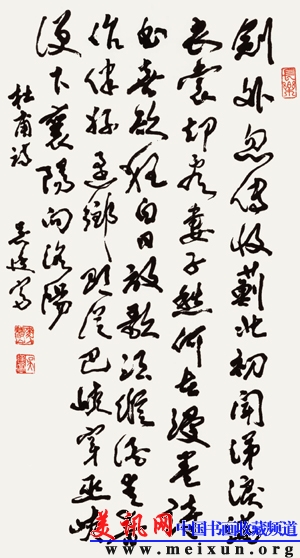 劍外忽傳收薊北初聞涕淚滿
衣裳却看妻子愁何在漫卷詩
書喜欲狂白日放歌須縱酒青春
作伴好還鄉即從巴峽穿巫峽
便下襄陽向洛陽
杜甫詩
長樂
美讯网
中国书画收藏频道
www.meixun.org